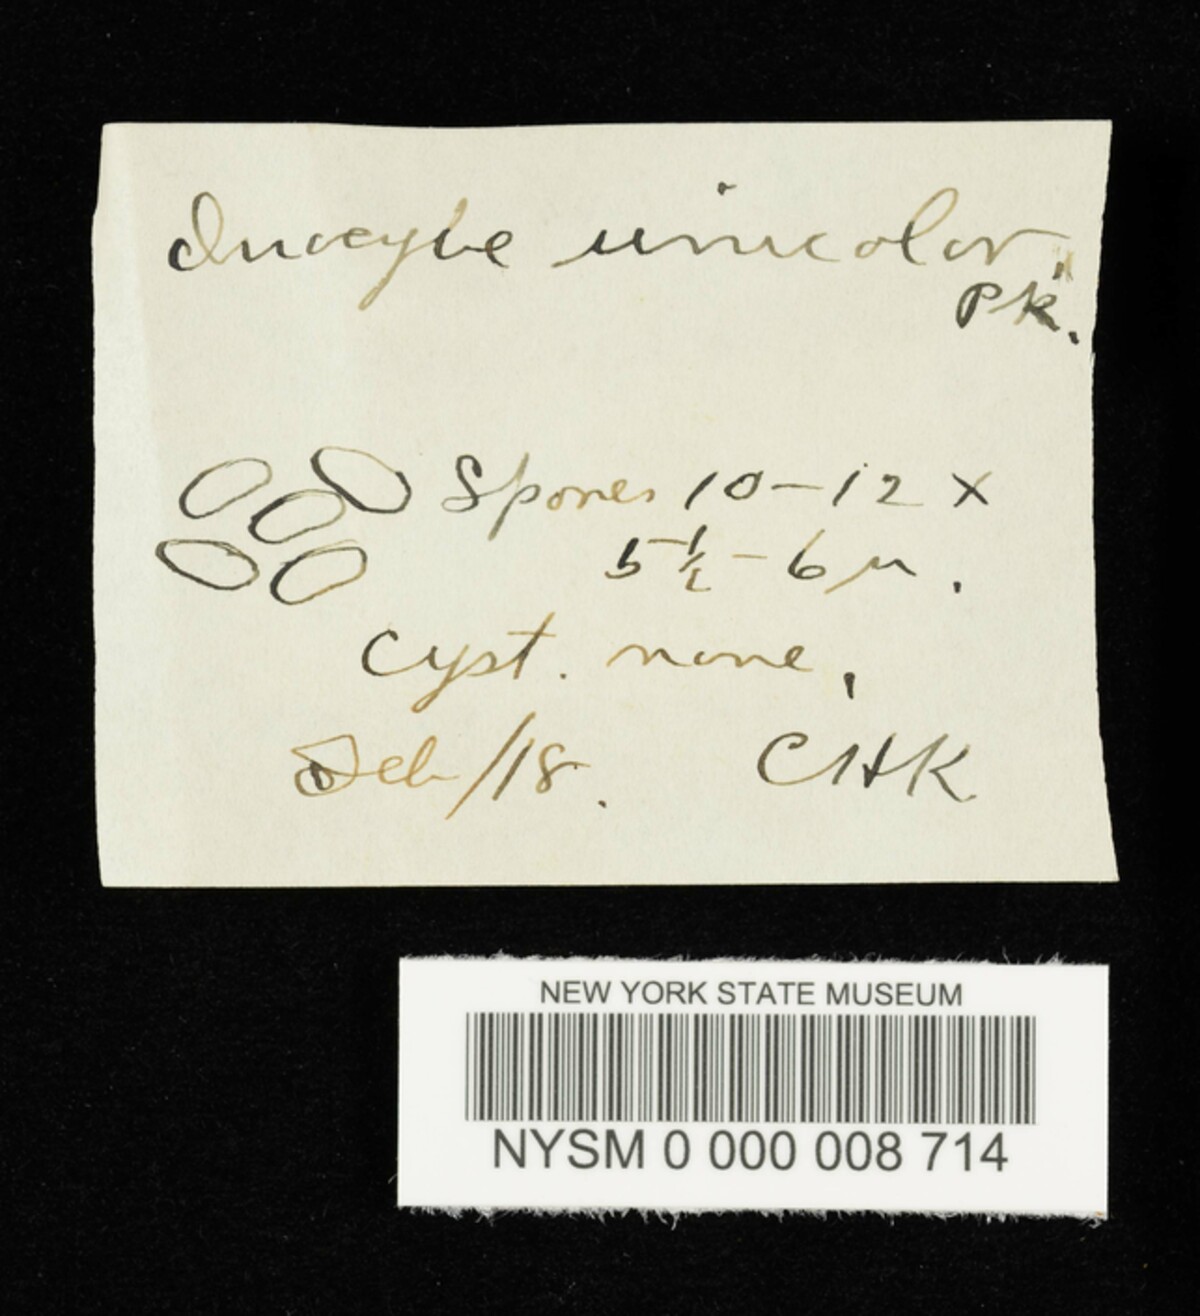 Inocybe unicolor.
Pk.
Spores 10-12 x
5 1/2 - 6 μ.
Cyst. none.
Feb/18. CHK
NEW YORK STATE MUSEUM
NYSM 0 000 008 714